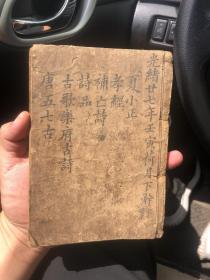 光緒廿七年壬寅荷月下幹訂
夏小正
孝經
補亡詩
詩品
古歌樂府古詩
唐五七古